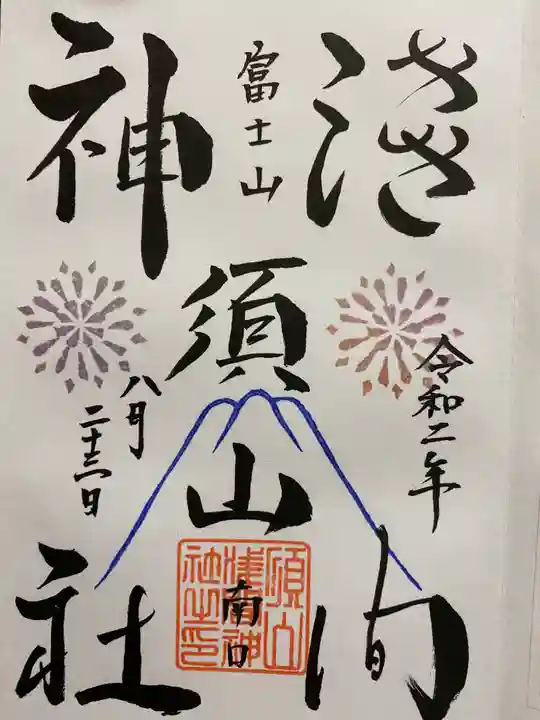 富士山
須山
淺间
神社
南口
令和二年
八月
二十三日
須山
淺間神
社之印